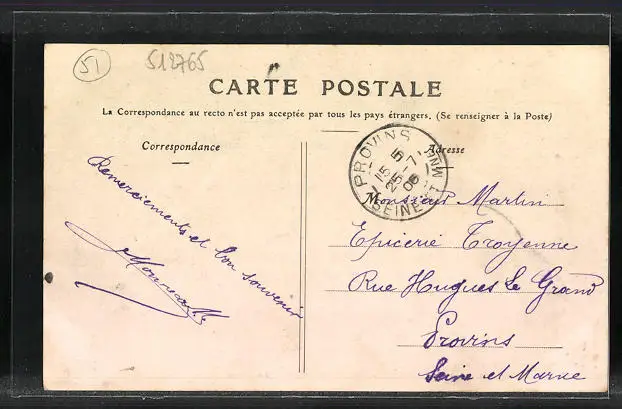 51
512765
CARTE POSTALE
La Correspondance au recto n'est pas acceptée par tous les pays étrangers. (Se renseigner à la Poste)
Correspondance
Adresse
PROVINS
15 5
25 -7
06
SEINE ET MNE
Remerciements et bon souvenir
Monsieur Martin
Epicerie Troyenne
Rue Hugues Le Grand
Provins
Seine et Marne